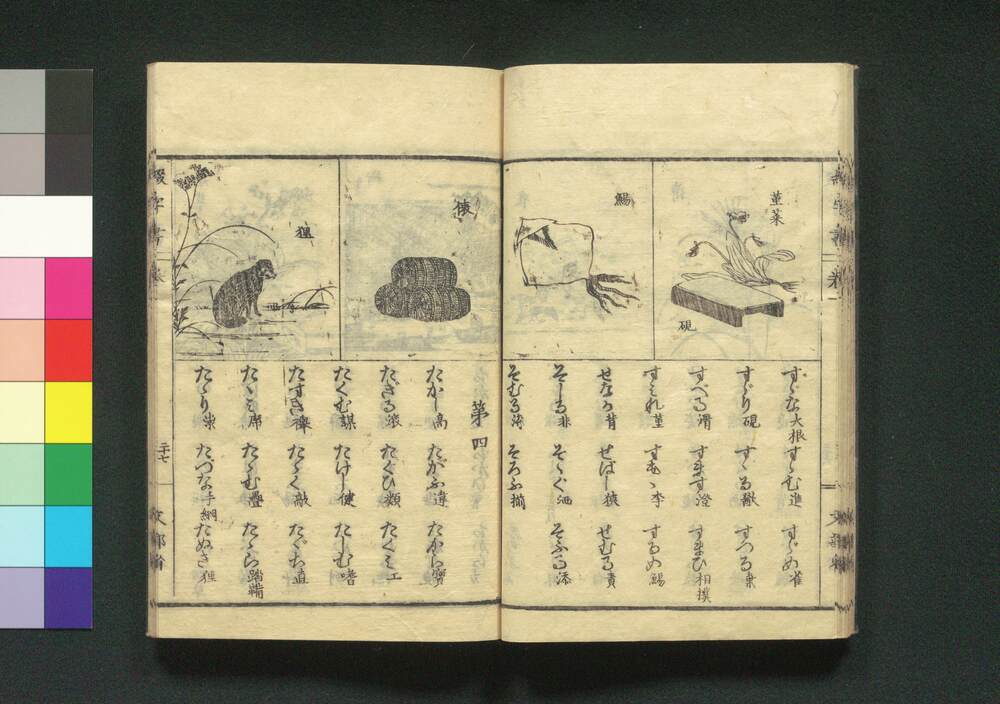 菫菜
硯
鯣
すゞな大根 すゝむ進 すゞめ雀
すゞり硯 すゝる歠 すつる棄
すべる滑 すます澄 すまひ相撲
すみれ菫 すもゝ李 するめ鯣
せなか背 せばし狹 せむる責
そしる非 そゝぐ洒 そふる添
そむる染 そろふ揃
俵
狸
第四
たかし高 たがふ違 たから寶
たきる滾 たぐひ類 たくみ工
たくむ謀 たけし健 たしむ嗜
たすき襷 たゝく敲 たゞち直
たゝみ席 たゝむ疊 たゝら蹈鞴
たゝり祟 たづな手綱 たぬき狸
二十七